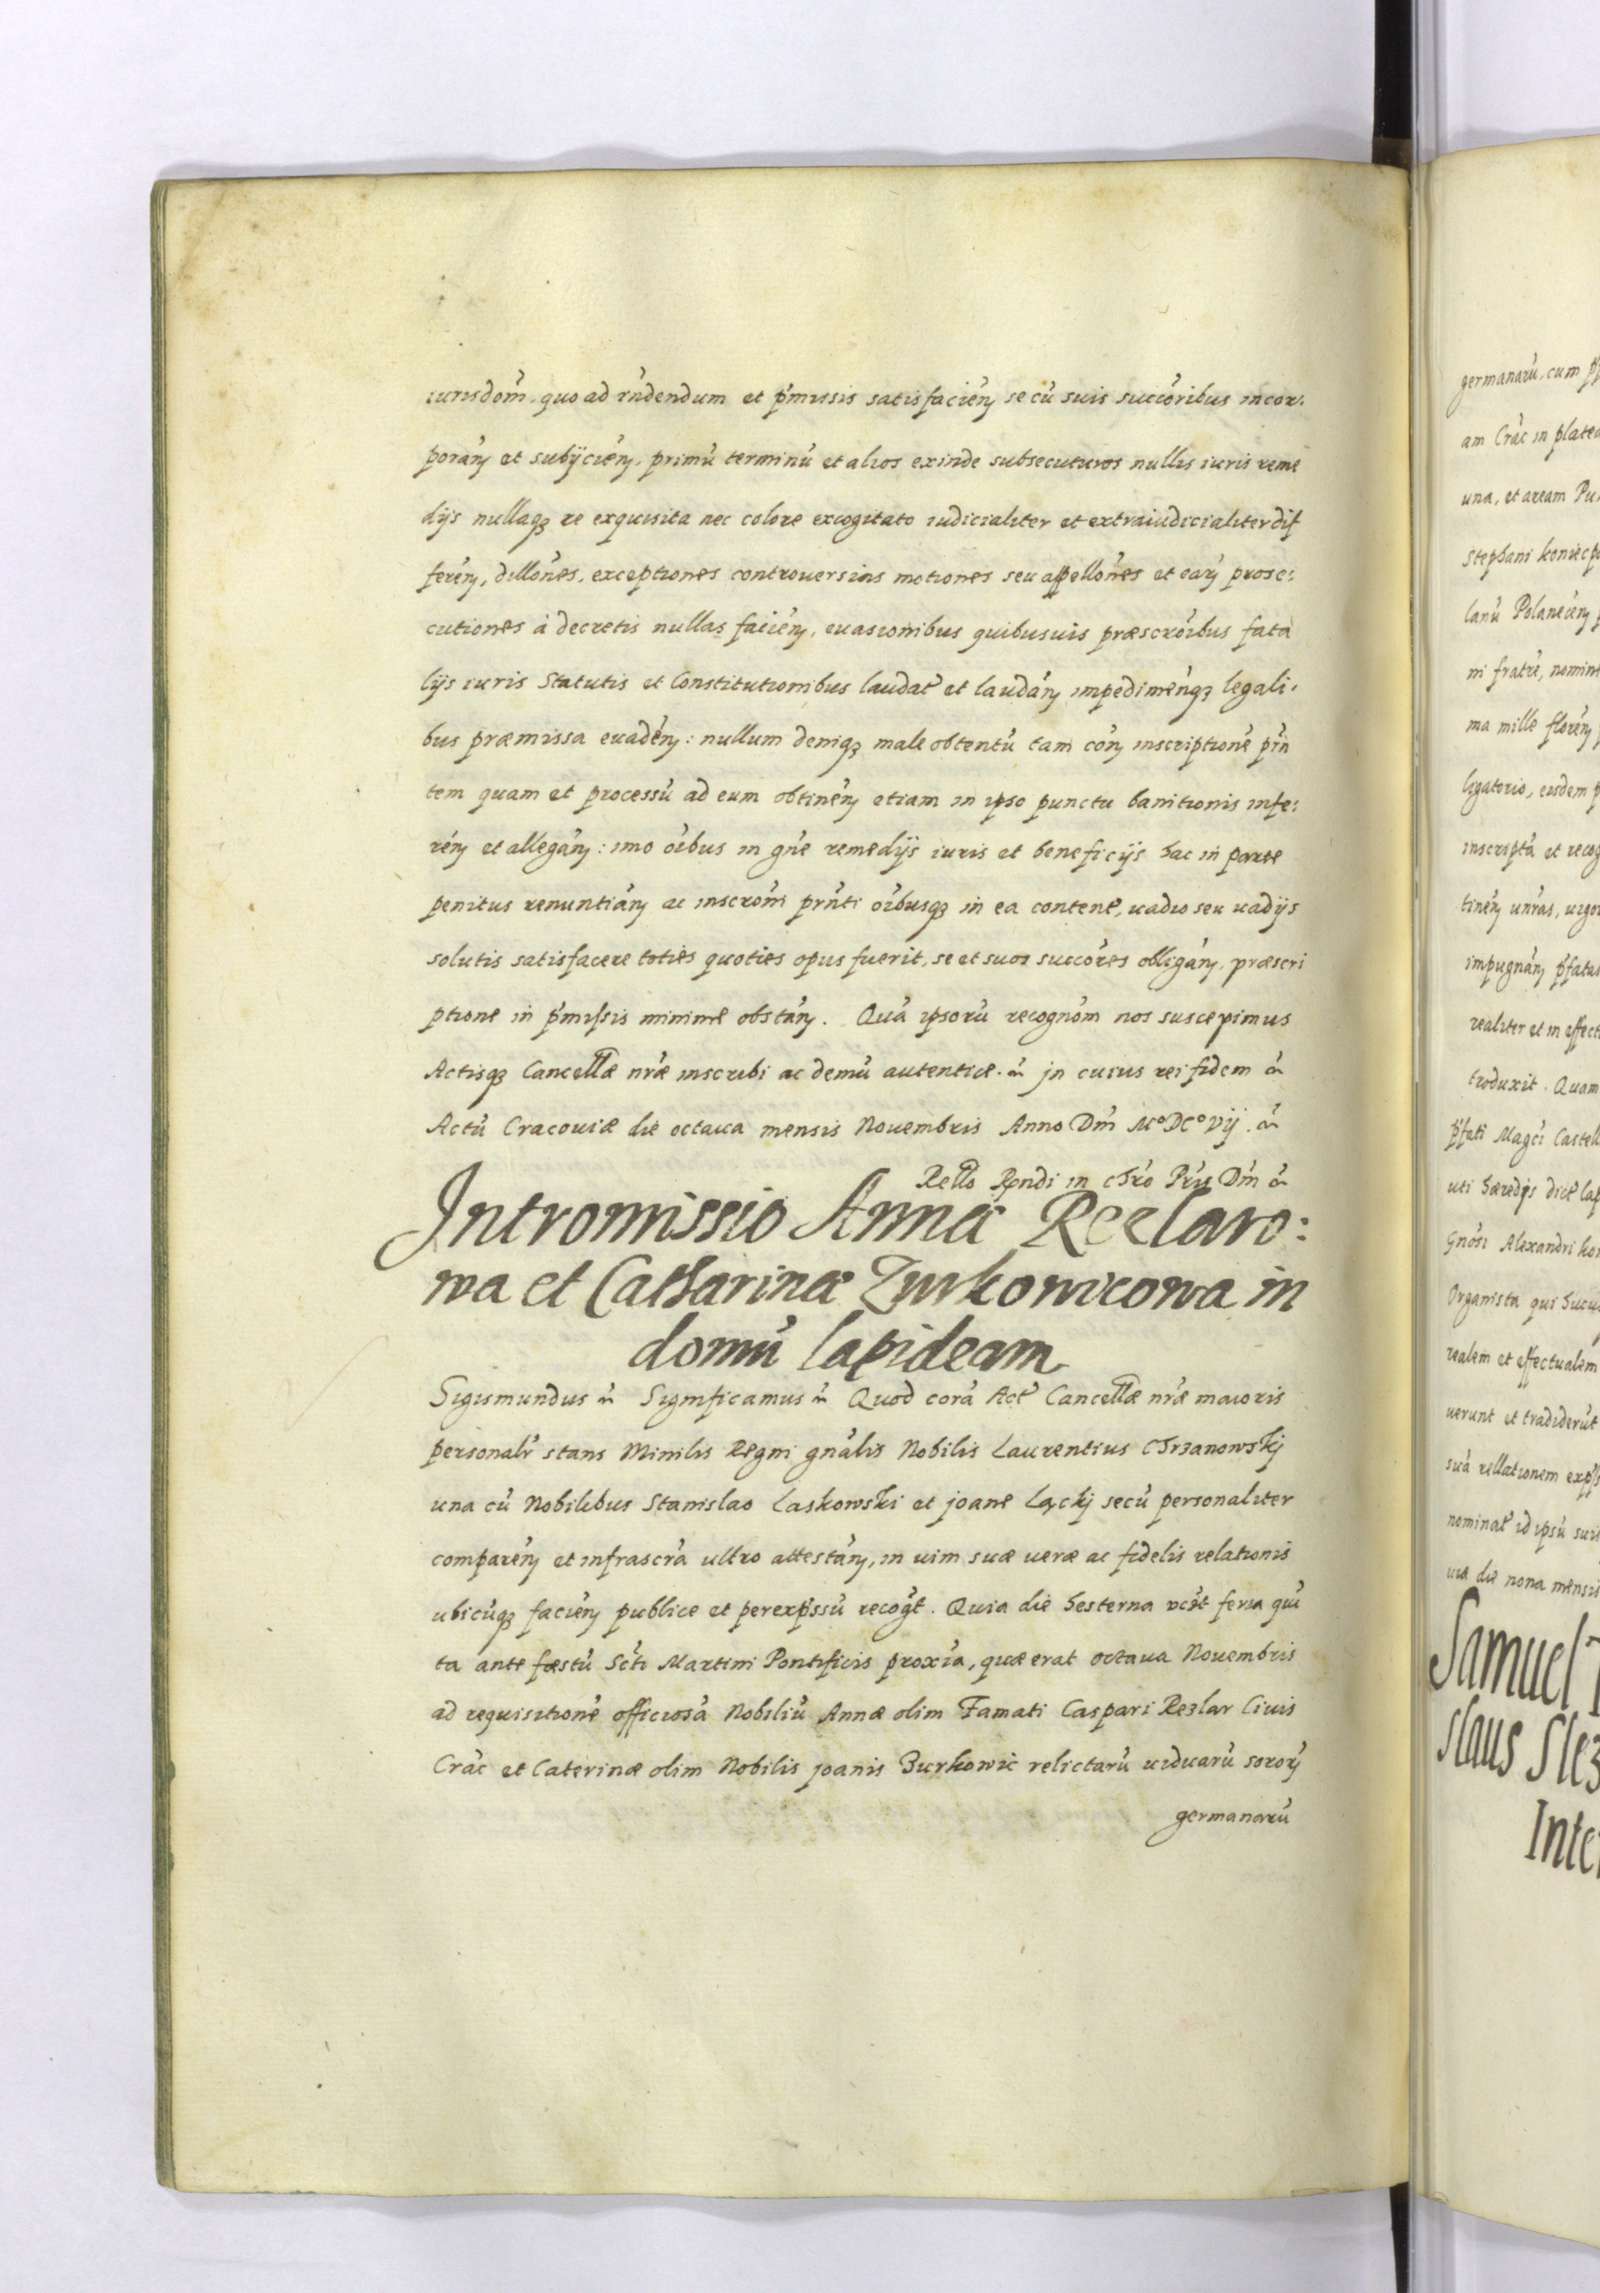 iurisdom̃. quo ad rñdendum et p̃missis satisfacień se cũ suis succõribus incor:
porań et subijcień, primũ terminũ et alios exinde subsecuturos nullis iuris reme
dijs nullaqȝ re exquisita nec colore excogitato iudicialiter et extraiudicialiter dif
ferén, dillões, exceptiones controversias motiones seu appellões et earũ prose:
cutiones à decretis nullas facień, evasionibus quibusuis præscrõibus fata
lijs iuris Statutis et Constitutionibus laudat̃ et laudań impedimeñqȝ legali:
bus præmissa evadeń: nullum deniqȝ male obtentũ tam coń inscriptionẽ pñ
tem quam et processũ ad eum obtineń etiam in ipso punctu banitionis infe:
reń et allegań: imo oĩbus in gñe remedijs iuris et beneficijs hac in parte
penitus renuntiań ac inscrõni prñti oĩbusqȝ in ea content̃, vadio seu vadijs
solutis satisfacere totiẽs quoties opus fuerit, se et suos succõres obligań, præscri
ptione in p̃missis minimẽ obstań. Quã ipsorũ recognõm nos suscepimus
Actisqȝ Cancellæ nr̃æ inscribi ac demũ autenticẽ. &c̃ jn cuius rei fidem &c̃
Actũ Cracouiæ die octaua mensis Nouembris Anno Dñi M° DC° Vij. &c̃
Rello Rṽndi in chr̃o Pr̃is Dñi &c̃
Intromissio Annæ Rezlaro:
wa et Catharinæ Zurkowicowa in
domũ lapideam
Sigismundus &c̃ Significamus &c̃ Quod corã Act̃ Cancellæ nr̃æ maioris
personalr̃ stans Minilis Regni gnãlis Nobilis Laurentius Chrzanowskj
una cũ Nobilibus Stanislao Laskowski et joanẽ Ląckj secũ personaliter
compareń et infrascrã ultro attestań, in vim suæ veræ ac fidelis relationis
ubicũqȝ facień publice et perexp̃ssũ recog̃t. Quia die hesterna vcȝt feria qui
ta ante fæstũ Scti Martini Pontificis proxĩa, quæ erat octaua Nouembris
ad requisitionẽ officiosã Nobiliũ Annæ olim Famati Caspari Rezlar Ciuis
Crac̃ et Caterinæ olim Nobilis joanis Zurkowic relictarũ viduarũ sororũ
germanarũ
germanarũ, cum
am Crac̃ in platea
una, et aream
Stephani koniecp
lanũ Polaneceń
ni fratrẽ, nomin
ma mille floreń
ligatorio, eisdem
inscripta et recog
tineń unras, vigor
impugnań p̃fatas
realiter et in effect
troduxit. Quam
p̃fati Magci Castell
uti hæredis dict̃ lap
Gnosi Alexandri kon
Organista qui hucu
realem et effectualem
uerunt et tradiderũt
suã rellationem exp̃s
nominat̃ id ipsũ sui
uiæ die nona mensis
Samuel
slaus Slez
Inte